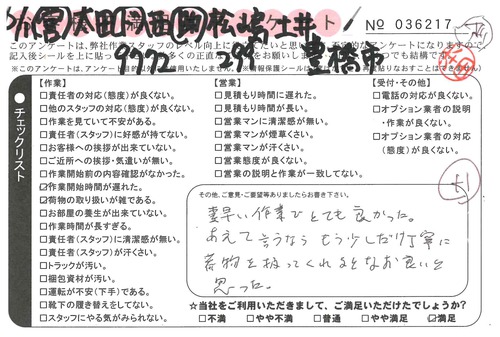 5/15 (営)太田 川西 (助)松嶋 土井
アンケート
№ 036217
9972 299 豊橋市
このアンケートは、弊社作業スタッフのレベル向上に
チェックリスト
【作業】
□責任者の対応(態度)が良くない。
□他のスタッフの対応(態度)が良くない。
□作業を見ていて不安がある。
□責任者(スタッフ)に好感が持てない。
□お客様への挨拶が出来ていない。
□ご近所への挨拶・気遣いが無い。
□作業開始前の内容確認がなかった。
☑作業開始時間が遅れた。
☑荷物の取り扱いが雑である。
□お部屋の養生が出来ていない。
□作業時間が長すぎる。
□責任者(スタッフ)に清潔感が無い。
□責任者(スタッフ)が汗くさい。
□トラックが汚い。
□梱包資材が汚い。
□運転が不安(下手)である。
□靴下の履き替えをしてない。
□スタッフにやる気がみられない。
【営業】
□見積もり時間に遅れた。
□見積もり時間が長い。
□営業マンに清潔感が無い。
□営業マンが煙草くさい。
□営業マンが汗くさい。
□営業態度が良くない。
□営業の説明と作業が一致してない。
【受付・その他】
□電話の対応が良くない。
□オプション業者の説明
・作業が良くない。
□オプション業者の対応
(態度)が良くない。
その他、ご意見・ご要望等ありましたらお書き下さい。
素早い作業でとても良かった。
あえて言うなら もう少しだけ丁寧に
荷物を扱ってくれるとなお良いと
思った。
☆当社をご利用いただきまして、ご満足いただけたでしょうか?
□不満 □やや不満 □普通 □やや満足 ☑満足